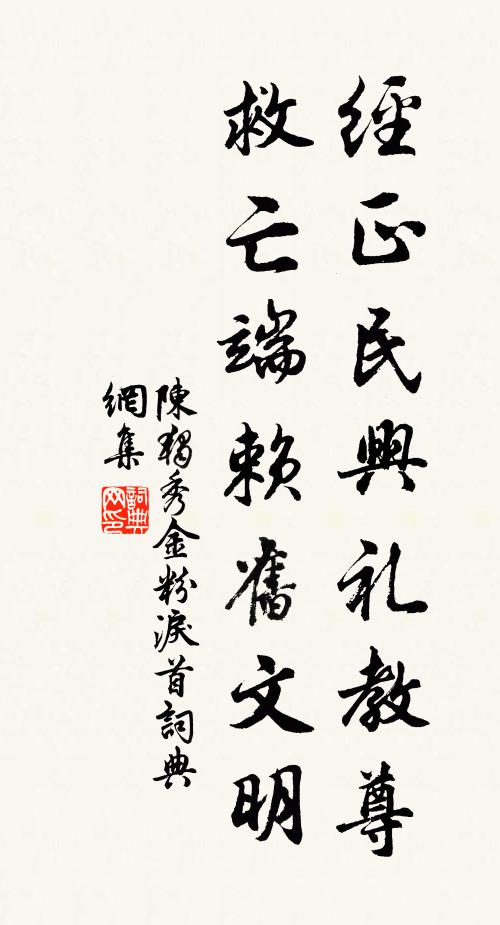 經正民興礼教尊
救亡端賴舊文明
陳獨秀金粉淚首詞典
網集
詞典
网印